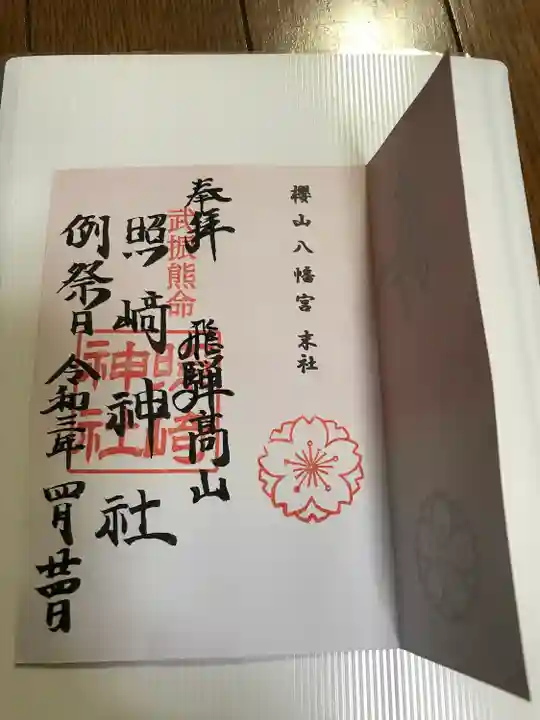 櫻山八幡宮 末社
奉拝
飛騨高山
武振熊命
照﨑神社
照崎神社
例祭日 令和三年 四月廿四日